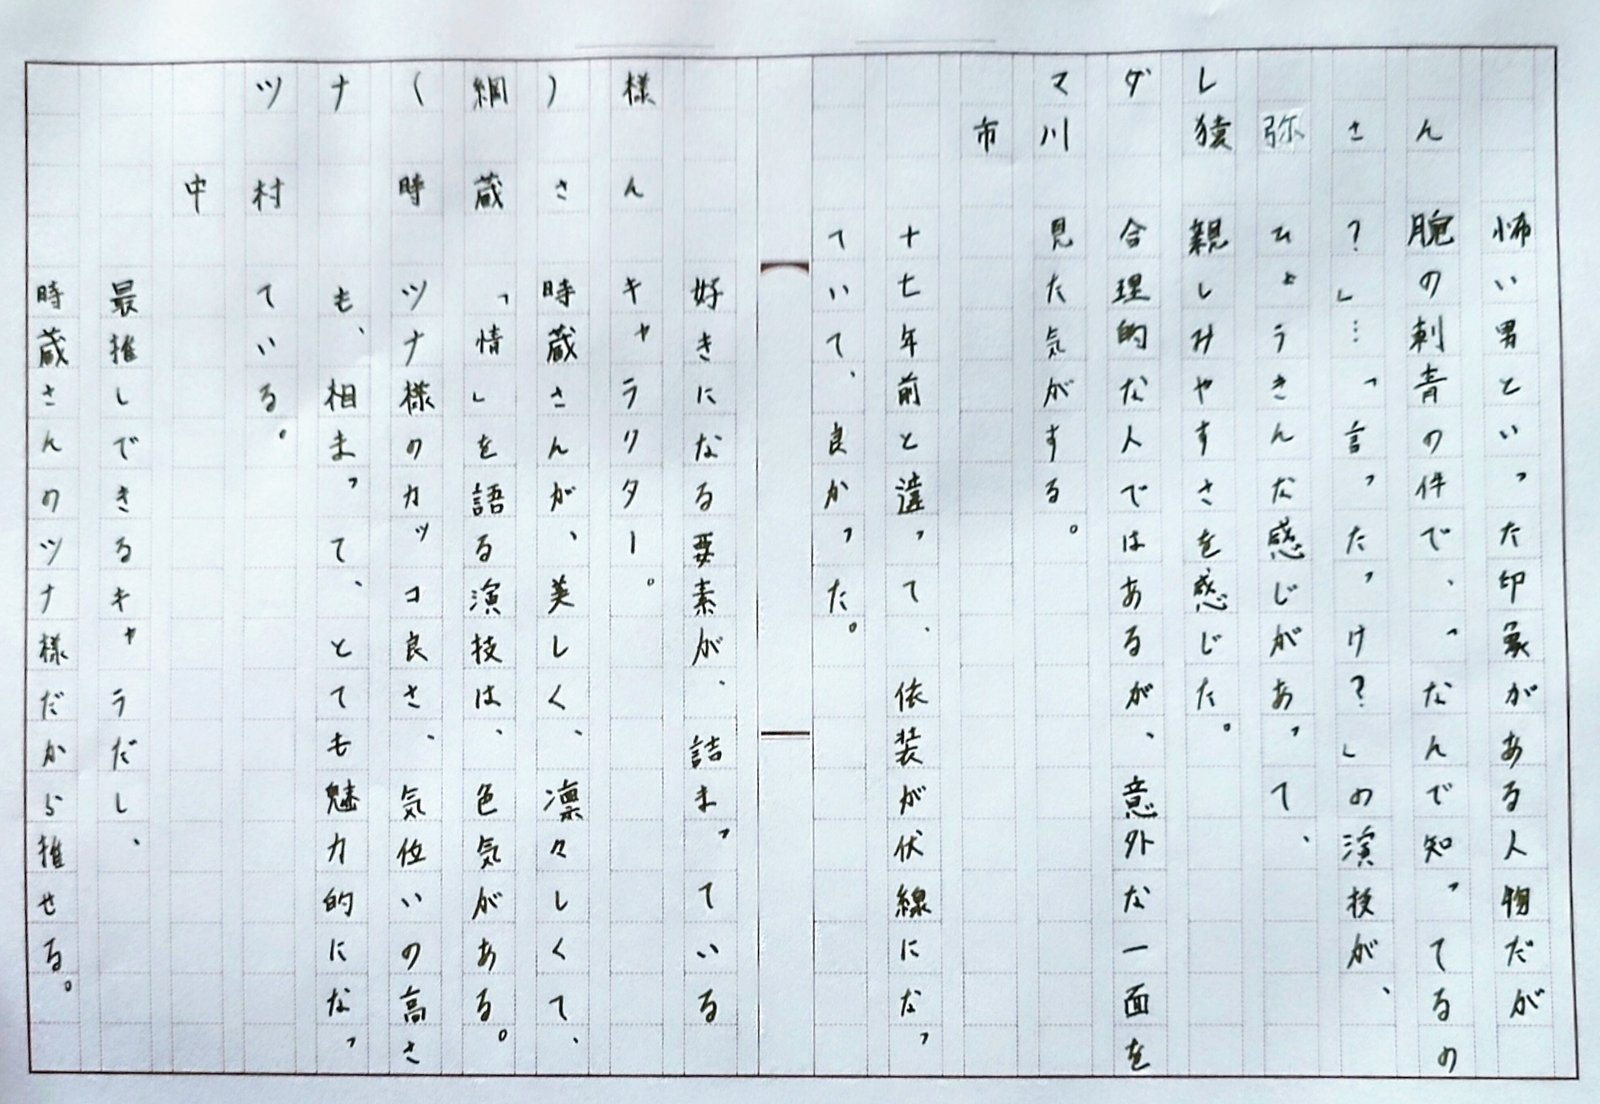 マダレ
市川 猿弥さん
怖い男といった印象がある人物だが
腕の刺青の件で、「なんで知ってるの
？」…「言ったっけ？」の演技が、
ひょうきんな感じがあって、
親しみやすさを感じた。
合理的な人ではあるが、意外な一面を
見た気がする。
十七年前と違って、依装が伏線になっ
ていて、良かった。
ツナ(綱)様
中村 時蔵さん
好きになる要素が、詰まっている
キャラクター。
時蔵さんが、美しく、凛々しくて、
「情」を語る演技は、色気がある。
ツナ様のカッコ良さ、気位いの高さ
も、相まって、とても魅力的になっ
ている。
最推しできるキャラだし、
時蔵さんのツナ様だから推せる。